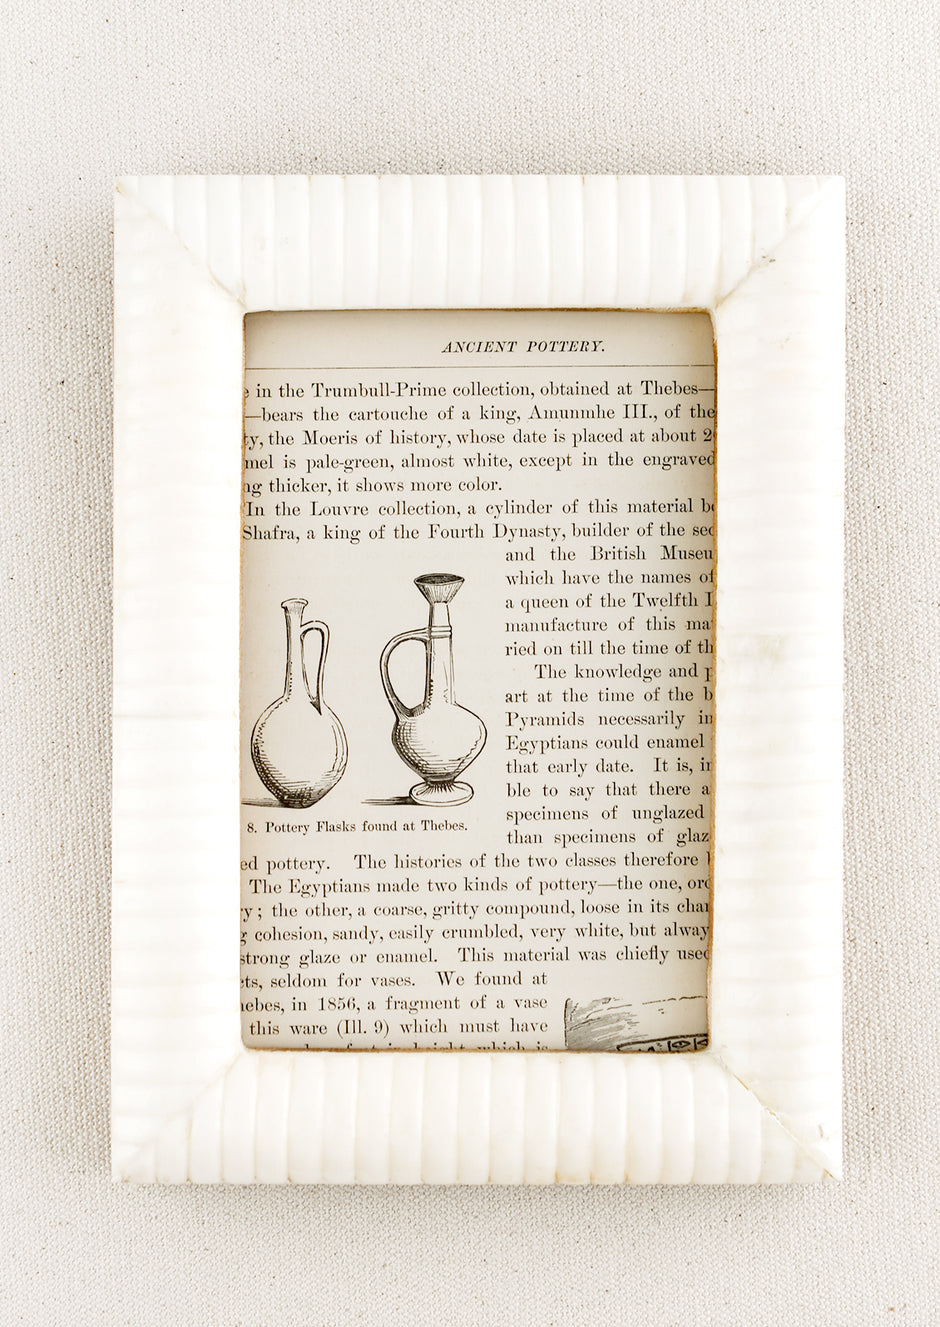 ANCIENT POTTERY.
in the Trumbull-Prime collection, obtained at Thebes—
—bears the cartouche of a king, Amunmhe III., of the
ty, the Moeris of history, whose date is placed at about 2
mel is pale-green, almost white, except in the engraved
ng thicker, it shows more color.
In the Louvre collection, a cylinder of this material be
Shafra, a king of the Fourth Dynasty, builder of the sec
and the British Museu
which have the names of
a queen of the Twelfth
manufacture of this ma
ried on till the time of th
The knowledge and
art at the time of the b
Pyramids necessarily in
Egyptians could enamel
that early date. It is, in
ble to say that there a
specimens of unglazed
than specimens of glaz
8. Pottery Flasks found at Thebes.
ed pottery. The histories of the two classes therefore
The Egyptians made two kinds of pottery—the one, ord
y; the other, a coarse, gritty compound, loose in its char
g cohesion, sandy, easily crumbled, very white, but alway
strong glaze or enamel. This material was chiefly used
cts, seldom for vases. We found at
hebes, in 1856, a fragment of a vase
this ware (Ill. 9) which must have